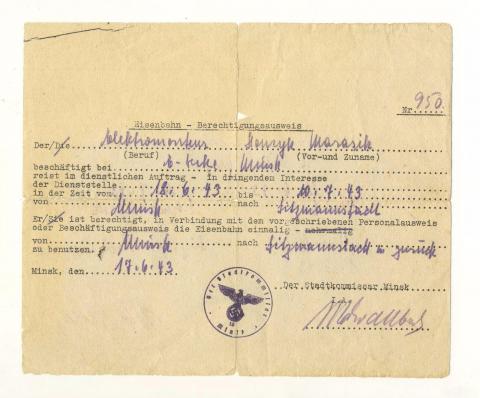 Nr. 950
Eisenbahn - Berechtigungsausweis
Der/Die Elektromonteur Henryk Marazik
(Beruf) (Vor-und Zuname)
beschäftigt bei Minsk
reist in dienstlichen Auftrag - in dringenden Interesse
der Dienststelle
in der Zeit vom 18.6.43 bis 10.7.43
von Minsk nach Litzmannstadt
Er/Sie ist berechtigt, in Verbindung mit dem vorgschriebenen Personalausweis
oder Beschäftigungsausweis die Eisenbahn einmalig - mehrmalig
von Minsk nach Litzmannstadt u zurück
zu benutzen.
Minsk, den 17.6.43
Der Stadtkommissar Minsk
Der Stadtkommissar
in
Minsk